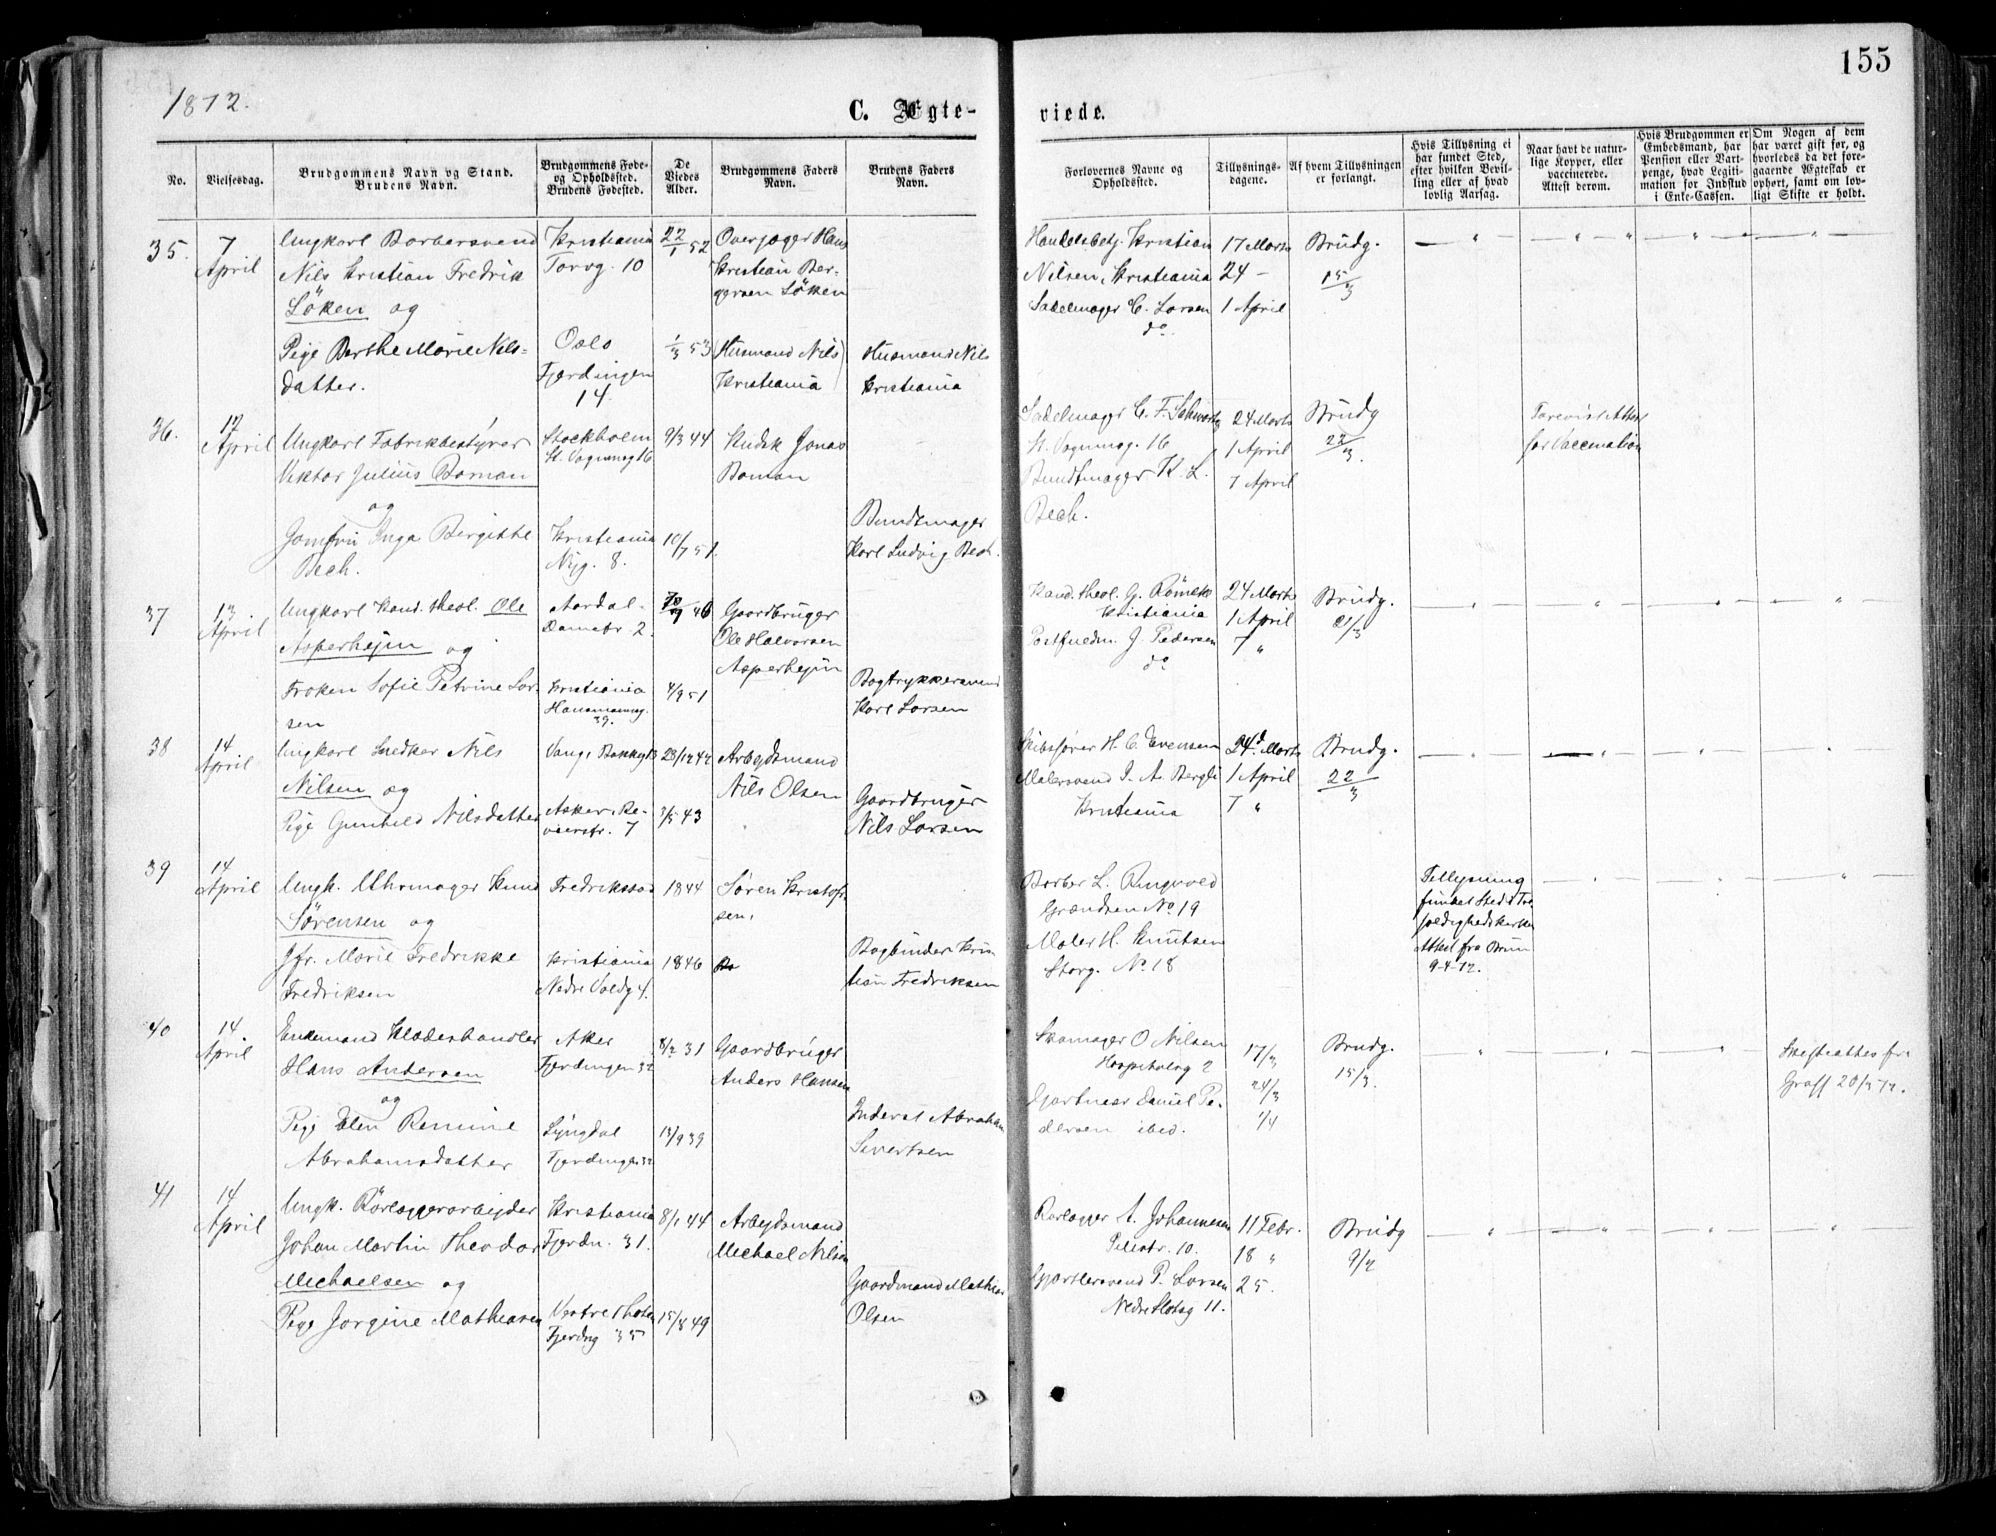 155
1872.
C. Ægte-
viede.
No.
Vielsesdag.
Brudgommens Navn og Stand.
Brudens Navn.
Brudgommens Føde-
og Opholdssted.
Brudens Fødested.
De
Viedes
Alder.
Brudgommens Faders
Navn.
Brudens Faders
Navn.
Forlovernes Navne og
Opholdssted.
Tillysnings-
dagene.
Af hvem Tillysningen
er forlangt.
Hvis Tillysning ei
har fundet Sted,
efter hvilken Bevil-
ling eller af hvad
lovlig Aarsag.
Naar havt de natur-
lige Kopper, eller
vaccinerede.
Attest derom.
Hvis Brudgommen er
Embedsmand, har
Pension eller Vart-
penge, hvad Legiti-
mation for Indskud
i Enke-Cassen.
Om Nogen af dem
har været gift før, og
hvorledes da det fore-
gaaende Ægteskab er
ophørt, samt om lov-
ligt Skifte er holdt.
35.
7
April
Ungkarl Barbersvend
Nils Kristian Fredrik
Söken og
Pige Berthe Marie Nils-
datter.
Kristiania
Torvg. 10
Oslo
Fjerdingen
14
22/1 52
1/3 53
Overjæger Hans
Kristian Ber-
gersen Söken
(Husmand Nils)
Kristiania
Husmand Nils
Kristiania
Handelsbetj. Kristian
Nilsen, Kristiania
Sadelmager C. Larsen
do
17 Marts
24 –
1 April
Brudg.
15/3
36.
12
April
Ungkarl Fabrikbestyrer
Viktor Julius Boman
og
Jomfru Inga Bergitte
Bech.
Stockholm
St. Vognmg 16
Kristiania
Nyg. 8.
9/3 44
10/7 51.
Kudsk Jonas
Boman
Bundtmager
Karl Ludvig Bech.
Sadelmager C. F. Schwartz
St. Vognmg. 16
Bundtmager K. L.
Bech.
24 Marts
1 April
7 April
Brudg
22/3.
Forevist Attest
for Vaccination
37
13
April
Ungkarl Kand. theol. Ole
Asperhejm og
Frøken Sofie Petrine Lar-
sen
Aardal-
Damstr 2.
Kristiania
Hausmannsg.
39.
46
4/9 51
Gaardbruger
Ole Halvorsen
Asperhejm
Bogtrykkersvend
Karl Larsen
Kand. theol. G.
Kristiania
J. Pedersen
do
24 Marts
1 April
7 "
Brudg.
21/3
38
14
April
Ungkarl Snedker Nils
Nilsen og
Pige Gunhild Nilsdatter
Vang. Bakkeg 13
Asker. Re-
vierstr. 7
28/12 42
3/5 43
Arbejdsmand
Nils Olsen
Gaardbruger
Nils Larsen
Skibsfører H. C. Evensen
Malersvend I. A. Bergli
Kristiania
24d Marts
1 April
7 "
Brudg.
22/3
39
14
April
Ungk. Uhrmager Knud
Sörensen og
Jfr. Marie Fredrikke
Fredriksen
Fredriksstad
Kristiania
Nedre Voldg 4.
1844
1846
Søren Kristof-
sen,
Bogbinder Kris-
tian Fredriksen
Barber L. Ringvold
Grændsen No 19
Maler H. Knutsen
Storg. No 18
Tillysning
fundet Sted i Tre-
foldighedskirken
Attest fra Bruun
9-4-72.
40
14
April
Enkemand Klædeshandler
Hans Andersen
og
Pige Elen Remine
Abrahamsdatter
Aker
Fjerdingen 32
Lyngdal
Fjerdingen 32
8/2 31
13/9 39
Gaardbruger
Anders Hansen
Inderst Abraham
Sivertsen
Skomager O Nilsen
Hospitalsg 2
Gjartner Daniel Pe-
dersen ibid.
17/3
24/3
1/4
Brudg.
15/3.
Skifteattest fra
Graff 20/3 72.
41
14
April
Ungk. Rörlæggerarbejder
Johan Martin Theodor
Michaelsen og
Pige Jorgine Mathiasen
Kristiania
Fjerdn. 31.
Vestre Thoten
Fjerdng 35
8/1 44
15/8 49
Arbejdsmand
Michael Nilsen
Gaardmand Mathias
Olsen
Rørlægger A. Johannesen
Pilestr. 10.
Gjørtlersvend P. Larsen
Nedre Slotsg 11.
11 Febr.
18 "
25.
Brudg
9/2